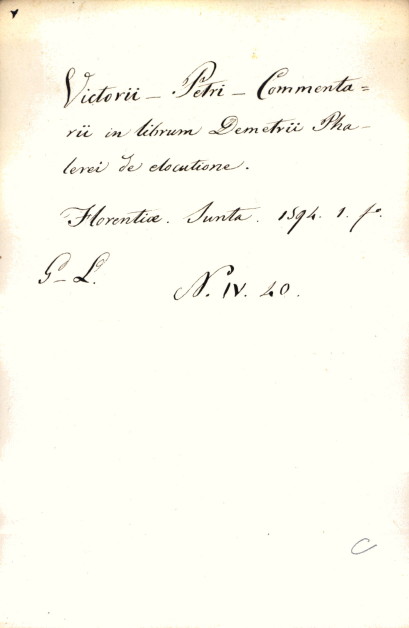 Victorii – Petri – Commenta=
rii in librum Demetrii Pha–
lerei de elocutione.
Florentiæ. Iunta. 1594. 1. fº.
G– L.
N. IV. 40.
C